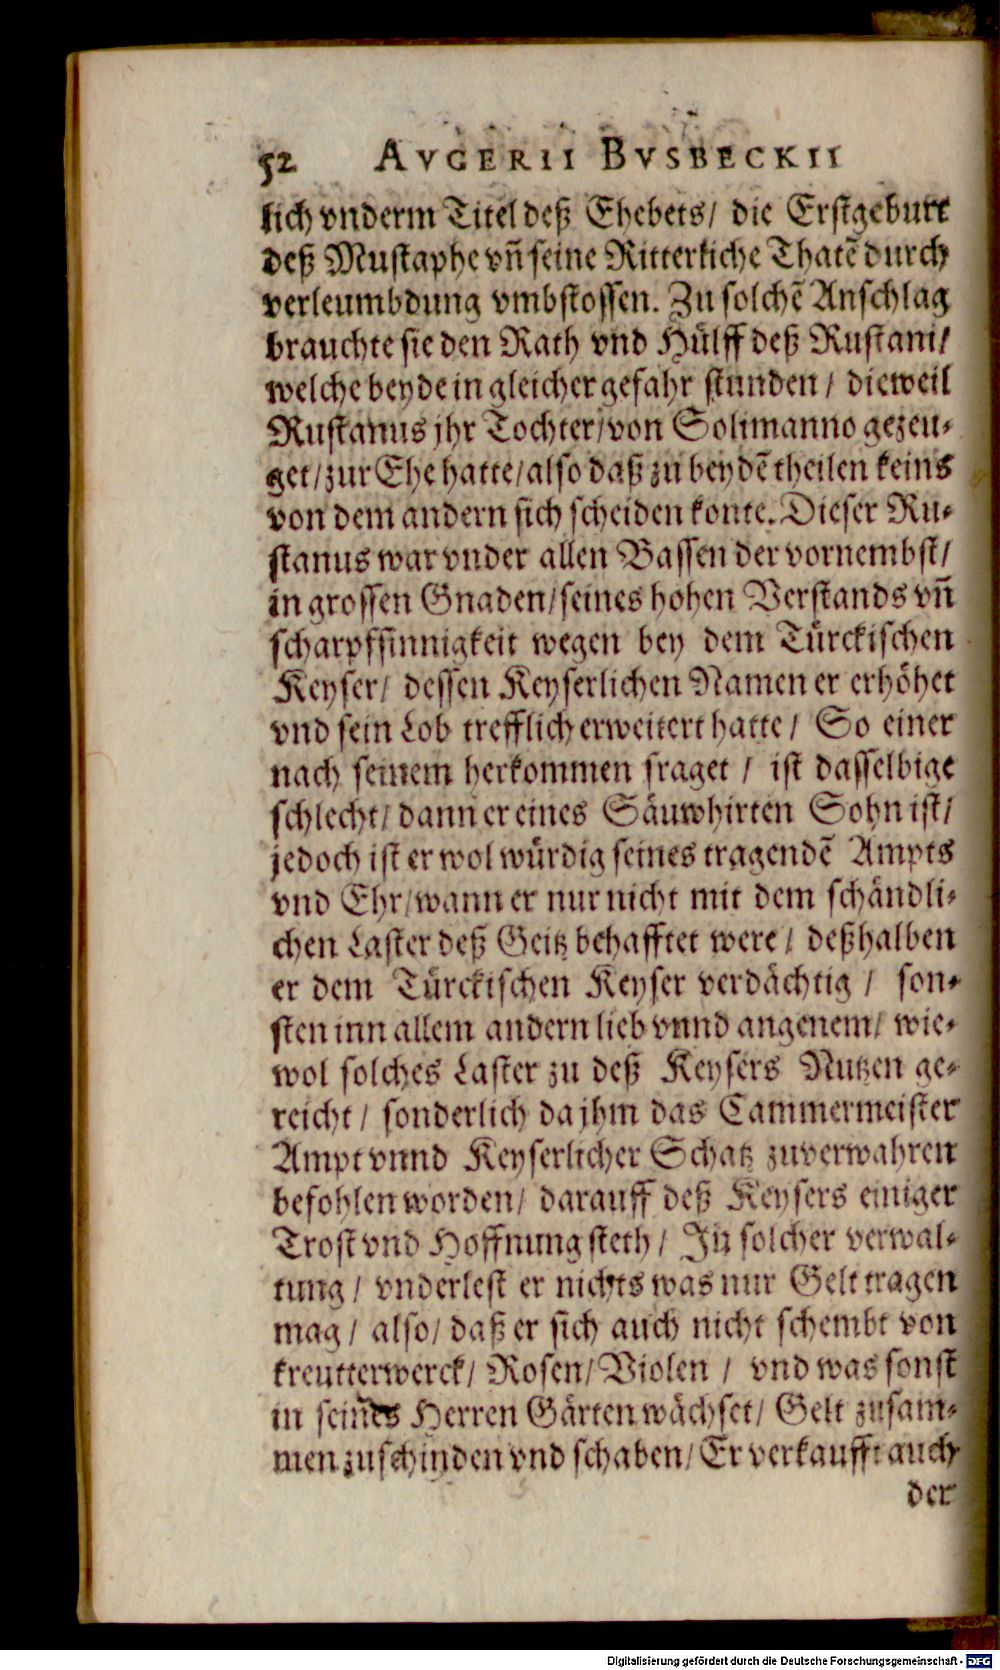 52 AVGERII BVSBECKII
lich vnderm Titel deß Ehebets/ die Erstgeburt
deß Mustaphe vñ seine Ritterliche Thatẽ durch
verleumbdung vmbstossen. Zu solchẽ Anschlag
brauchte sie den Rath vnd Hülff deß Rustani/
welche beyde in gleicher gefahr stunden/ dieweil
Rustanus jhr Tochter/von Solimanno gezeu-
get/zur Ehe hatte/also daß zu beydẽ theilen keins
von dem andern sich scheiden konte. Dieser Ru-
stanus war vnder allen Bassen der vornembst/
in grossen Gnaden/seines hohen Verstands vñ
scharpfsinnigkeit wegen bey dem Türckischen
Keyser/ dessen Keyserlichen Namen er erhöhet
vnd sein Lob trefflich erweitert hatte/ So einer
nach seinem herkommen fraget / ist dasselbige
schlecht/ dann er eines Säuwhirten Sohn ist/
jedoch ist er wol würdig seines tragendẽ Ampts
vnd Ehr/wann er nur nicht mit dem schändli-
chen Laster deß Geitz behafftet were/ deßhalben
er dem Türckischen Keyser verdächtig / son-
sten inn allem andern lieb vnnd angenem/ wie-
wol solches Laster zu deß Keysers Nutzen ge-
reicht/ sonderlich da jhm das Cammermeister
Ampt vnnd Keyserlicher Schatz zuverwahren
befohlen worden/ darauff deß Keysers einiger
Trost vnd Hoffnung steth/ In solcher verwal-
tung/ vnderlest er nichts was nur Gelt tragen
mag/ also/ daß er sich auch nicht schembt von
kreutterwerck/ Rosen/Violen / vnd was sonst
in seines Herren Gärten wächset/ Gelt zusam-
men zuschinden vnd schaben/Er verkaufft auch
der
Digitalisierung gefördert durch die Deutsche Forschungsgemeinschaft - DFG